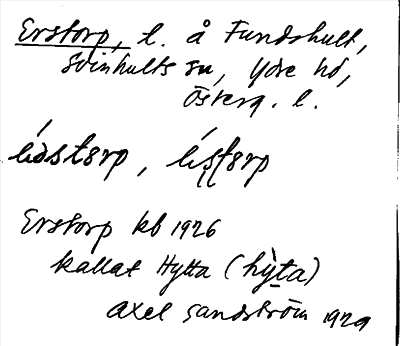 Erstorp, l. å Fundshult,
Svinhults sn, Ydre hd,
Österg. l.
Erstorp kb 1926
kallat Hytta (hỳta)
Axel Sandström 1929